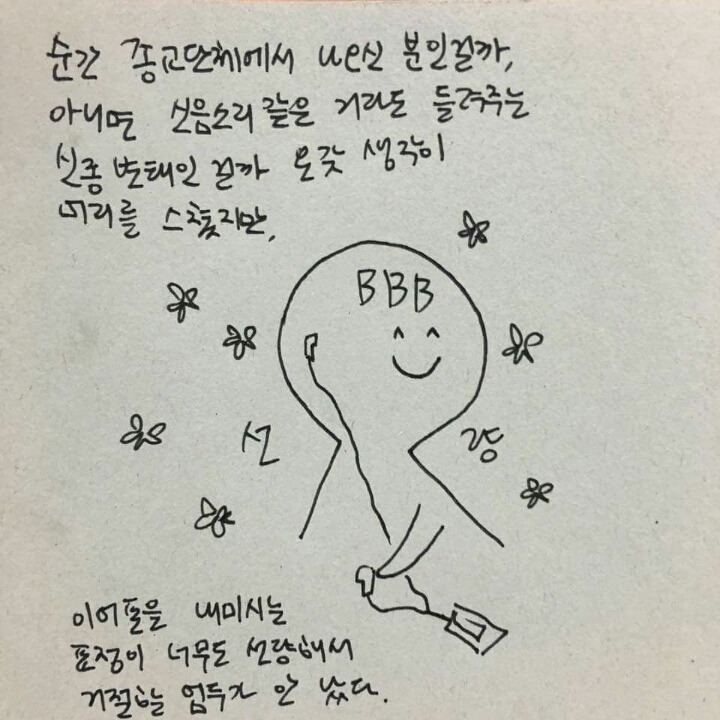 순간 종교단체에서 나오신 분인걸까,
아니면 신음소리 같은 거라도 들려주는
신종 변태인 걸까 온갖 생각이
머리를 스쳤지만,
BBB
선 량
이어폰을 내미시는
표정이 너무도 선량해서
거절하는 엄두가 안 났다.